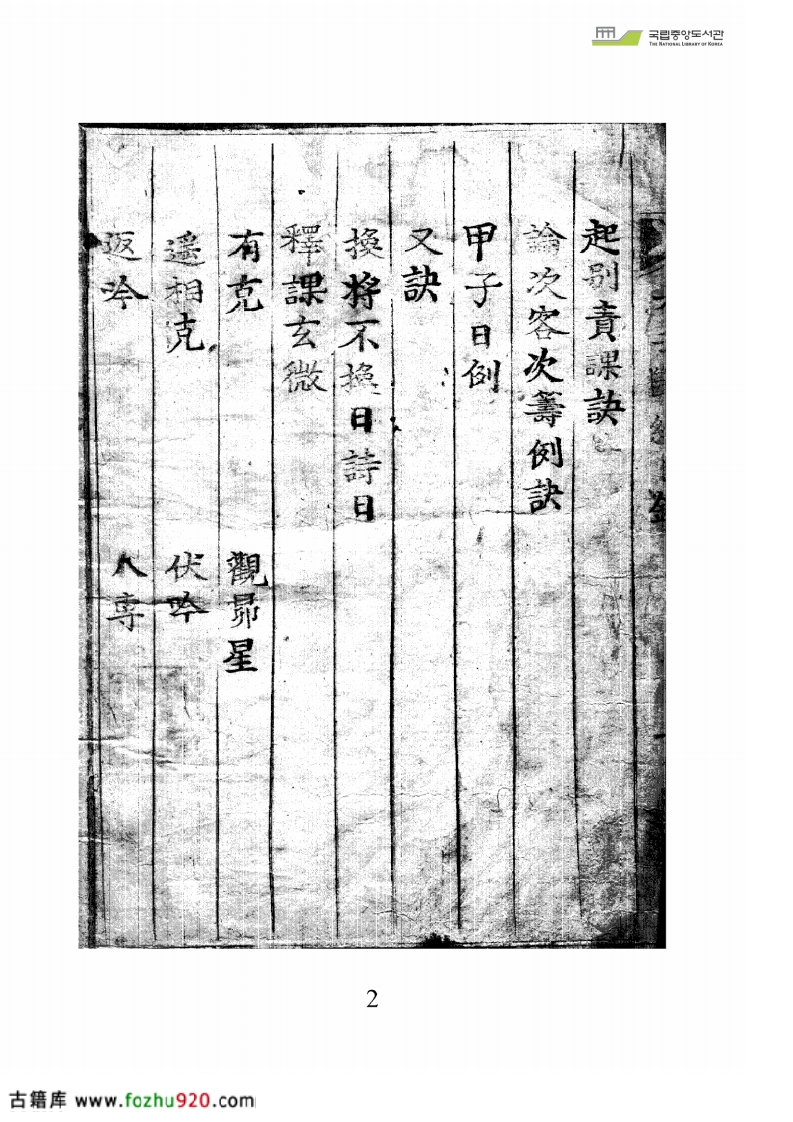 국립중앙도서관
THE NATIONAL LIBRARY OF KOREA
起別責課訣
論次客次籌例訣
甲子日例
又訣
換將不換日詩日
釋課玄微
有克 觀昴星
遥相克 伏吟
返吟 八專
2
古籍库 www.fozhu920.com